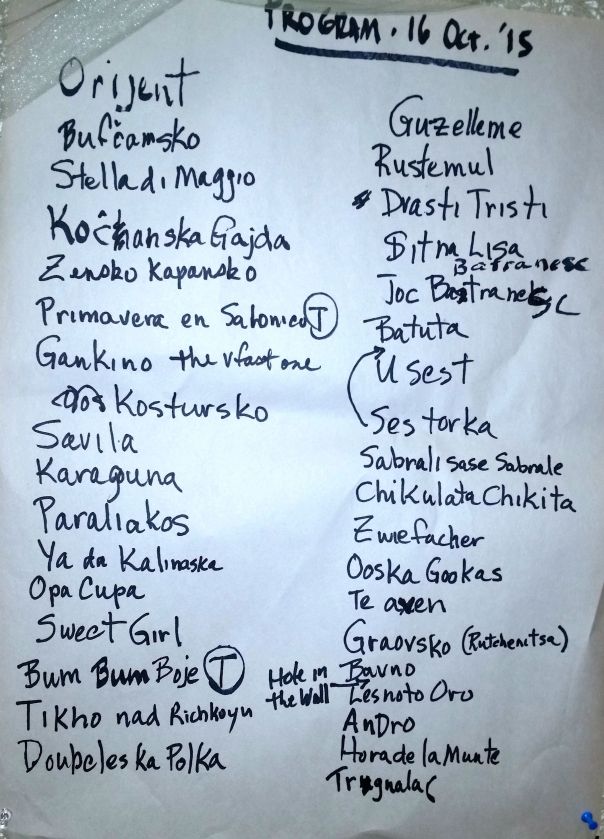 PROGRAM. 16 Oct. '15
Orijent
Bufčamsko
Stella di Maggio
Kočhanska Gajda
Zensko Kapansko
Primavera en Salonico T
Gankino the v fast one
Kostursko
Savila
Karaguna
Paraliakos
Ya da Kalinaska
Opa Cupa
Sweet Girl
Bum Bum Boje T
Tikho nad Richkoyu
Doubeleska Polka
Guzelleme
Rustemul
Drasti Tristi
Sitna Lisa
Batranesc
Joc
Batuta
U Sest
Sestorka
Sabrali sase Sabrale
Chikulata Chikita
Zwiefacher
Ooska Gookas
Te aven
Graovsko (Rutchenitsa)
Hole in the Wall
Bavno
Lesnoto Oro
AnDro
Hora de la Munte